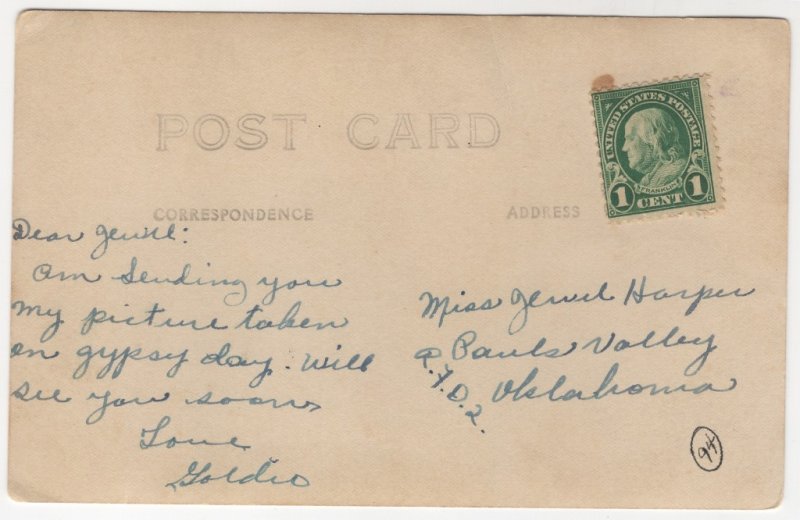 POST CARD
UNITED STATES POSTAGE
FRANKLIN
1 CENT 1
CORRESPONDENCE
ADDRESS
Dear Jewel:
am sending you
my picture taken
on gypsy day. Will
see you soon,
Love
Goldie
Miss Jewel Harper
Pauls Valley
R.F.D.2.
Oklahoma
94